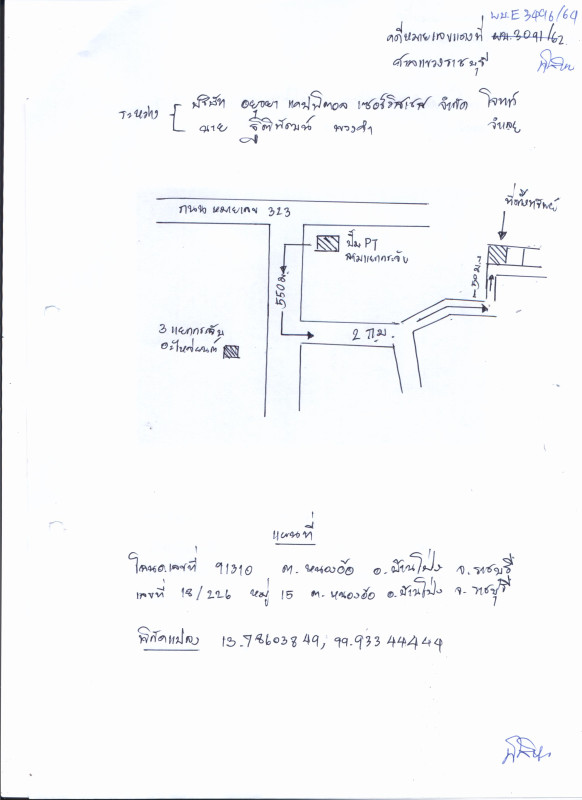 ผบ.E 3496/64
คดีหมายเลขแดงที่ ผบ.3091/62
ศาลแขวงราชบุรี
ระหว่าง บริษัท อยุธยา แคปปิตอล เซอร์วิสเซส จำกัด โจทก์
นาย ฐิติพัฒน์ พวงคำ จำเลย
ที่ตั้งทรัพย์
ถนน หมายเลข 323
ปั๊ม PT
สามแยกกระจับ
550 ม.
150 ม.
3 แยกกระจับ
อะไหล่ยนต์
2 กม.
แผนที่
โฉนดเลขที่ 91310 ต.หนองอ้อ อ.บ้านโป่ง จ.ราชบุรี
เลขที่ 18/226 หมู่ 15 ต.หนองอ้อ อ.บ้านโป่ง จ.ราชบุรี
พิกัดแปลง 13.78603849, 99.93344444